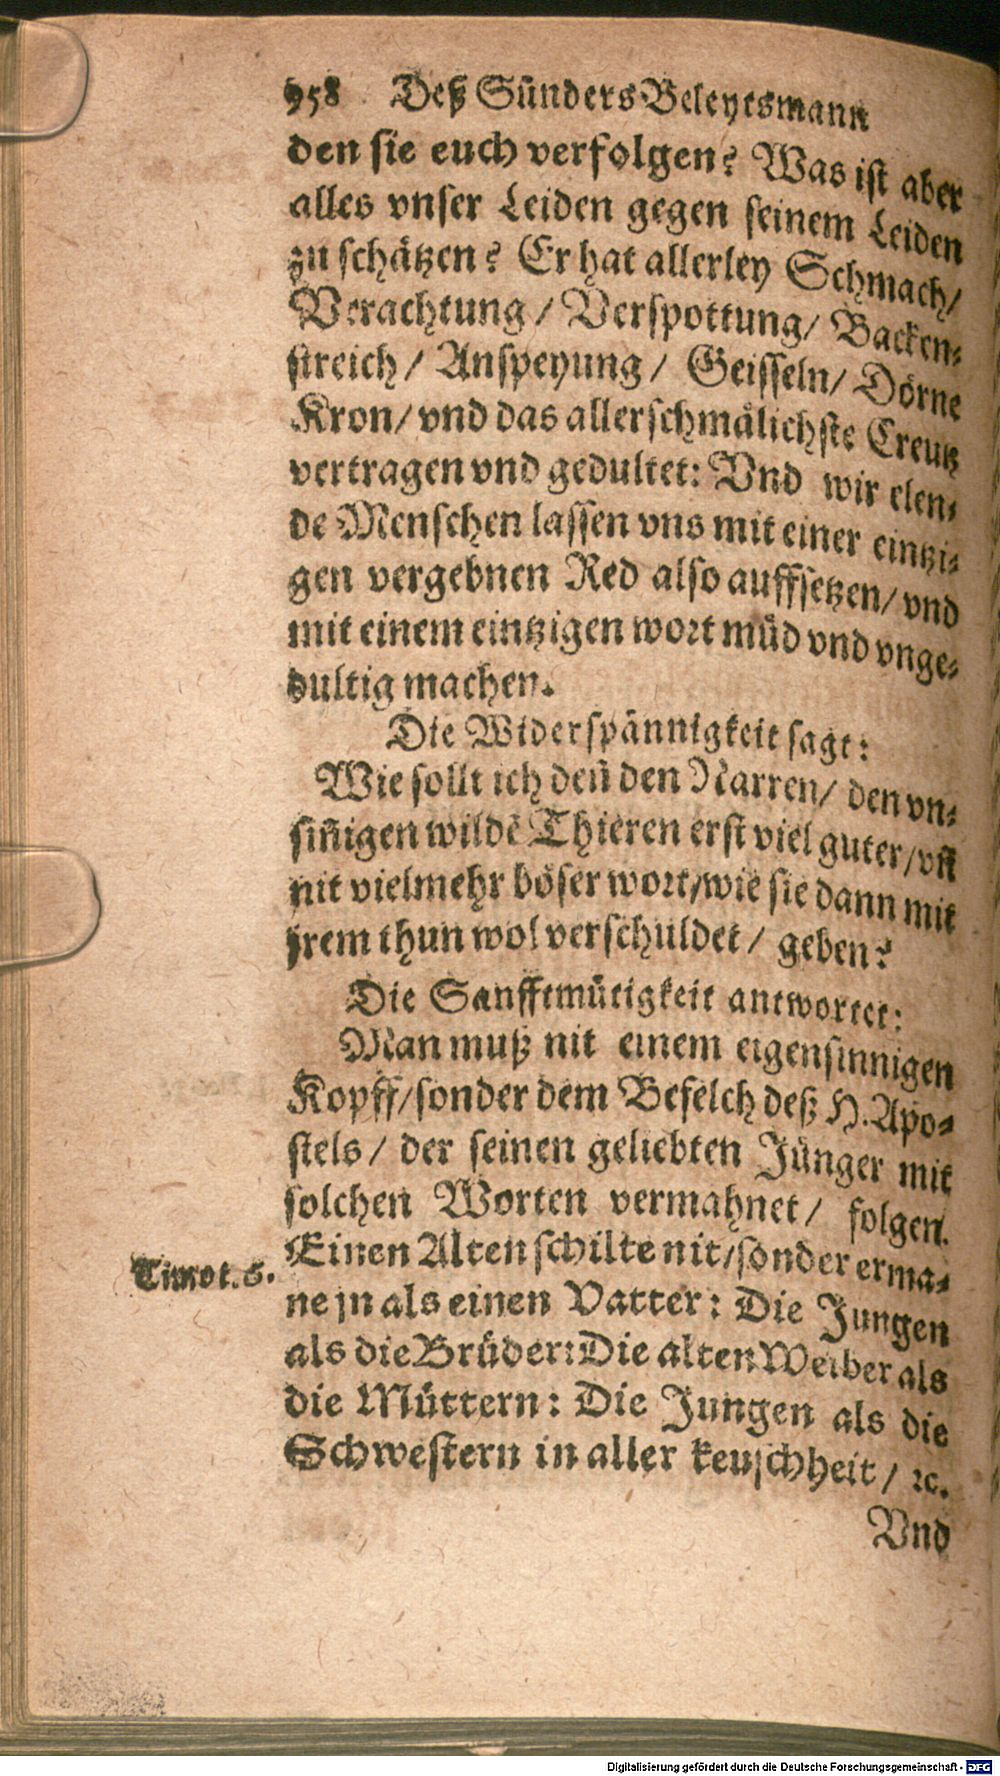 958 Deß Sünders Beleytsmann
den sie euch verfolgen? Was ist aber
alles vnser Leiden gegen seinem Leiden
zu schätzen? Er hat allerley Schmach/
Verachtung / Verspottung/ Backen-
streich / Anspeyung / Geisseln/ Dörne
Kron/ vnd das allerschmälichste Creutz
vertragen vnd gedultet: Vnd wir elen-
de Menschen lassen vns mit einer eintzi-
gen vergebnen Red also auffsetzen/ vnd
mit einem eintzigen wort müd vnd vnge-
dultig machen.
Die Widerspännigkeit sagt:
Wie sollt ich deñ den Narren/ den vn-
siñigen wildẽ Thieren erst viel guter/ vñ
nit vielmehr böser wort/ wie sie dann mit
jrem thun wol verschuldet / geben?
Die Sanfftmütigkeit antwortet:
Man muß nit einem eigensinnigen
Kopff/ sonder dem Befelch deß H. Apo-
stels / der seinen geliebten Jünger mit
solchen Worten vermahnet / folgen.
Timot. 5.
Einen Alten schilte nit/ sonder erma-
ne jn als einen Vatter: Die Jungen
als die Brüder: Die alten Weiber als
die Müttern: Die Jungen als die
Schwestern in aller keuschheit / ꝛc.
Vnd
Digitalisierung gefördert durch die Deutsche Forschungsgemeinschaft - DFG